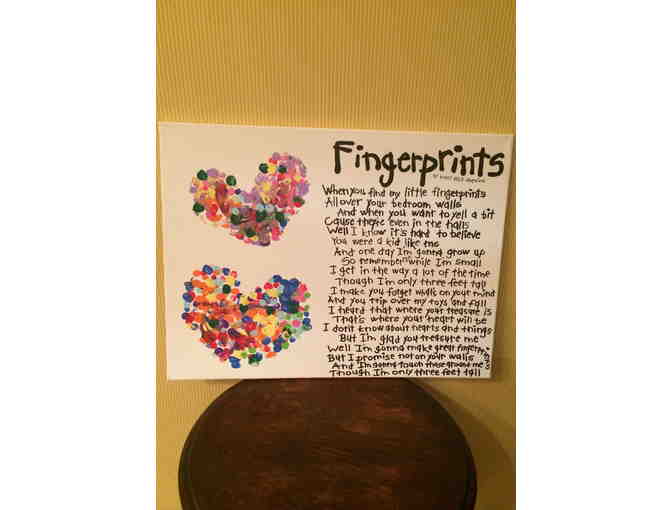 Fingerprints
When you find my little fingerprints
All over your bedroom walls
And when you want to yell a bit
Cause they're even in the halls
Well I know it's hard to believe
You were a kid like me
And one day I'm gonna grow up
So remember while I'm small
I get in the way a lot of the time
Though I'm only three feet tall
I make you forget what's on your mind
And you trip over my toys and fall
I heard that where your treasure is
That's where your heart will be
I don't know about hearts and things
But I'm glad you treasure me
Well I'm gonna make great fingerprints
But I promise not on your walls
And I'm gonna touch those around me
Though I'm only three feet tall